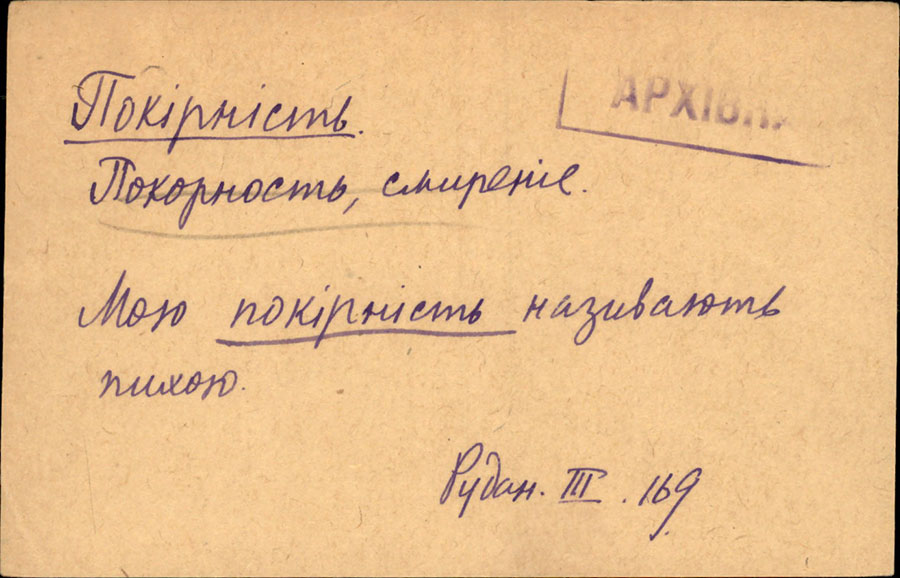 АРХІВНА
Покірність.
Покорность, смиреніе.
Мою покірність називають
пихою.
Рудан. III. 169